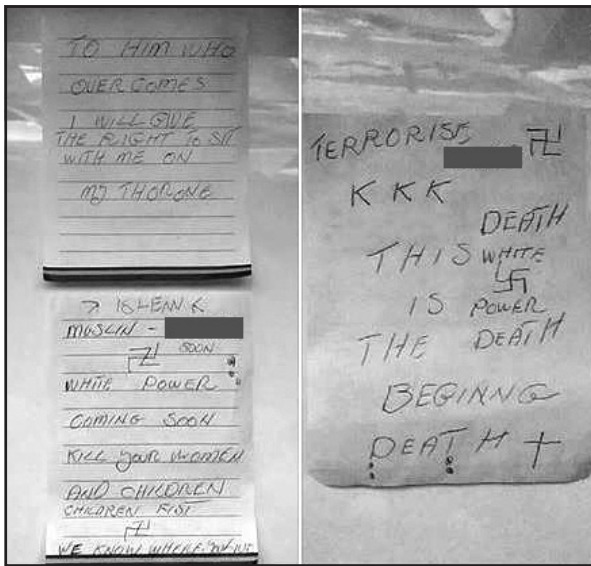 TO HIM WHO
OVER COMES
I WILL GIVE
THE RIGHT TO SIT
WITH ME ON
MY THORONE
MUSLIN -
SOON
WHITE POWER
COMING SOON
KILL YOUR WOMEN
AND CHILDREN
CHILDREN FIST
WE KNOW WHERE YOU LIVE
TERRORISE
KKK
DEATH
THIS WHITE
IS POWER
THE DEATH
BEGINNG
DEATH